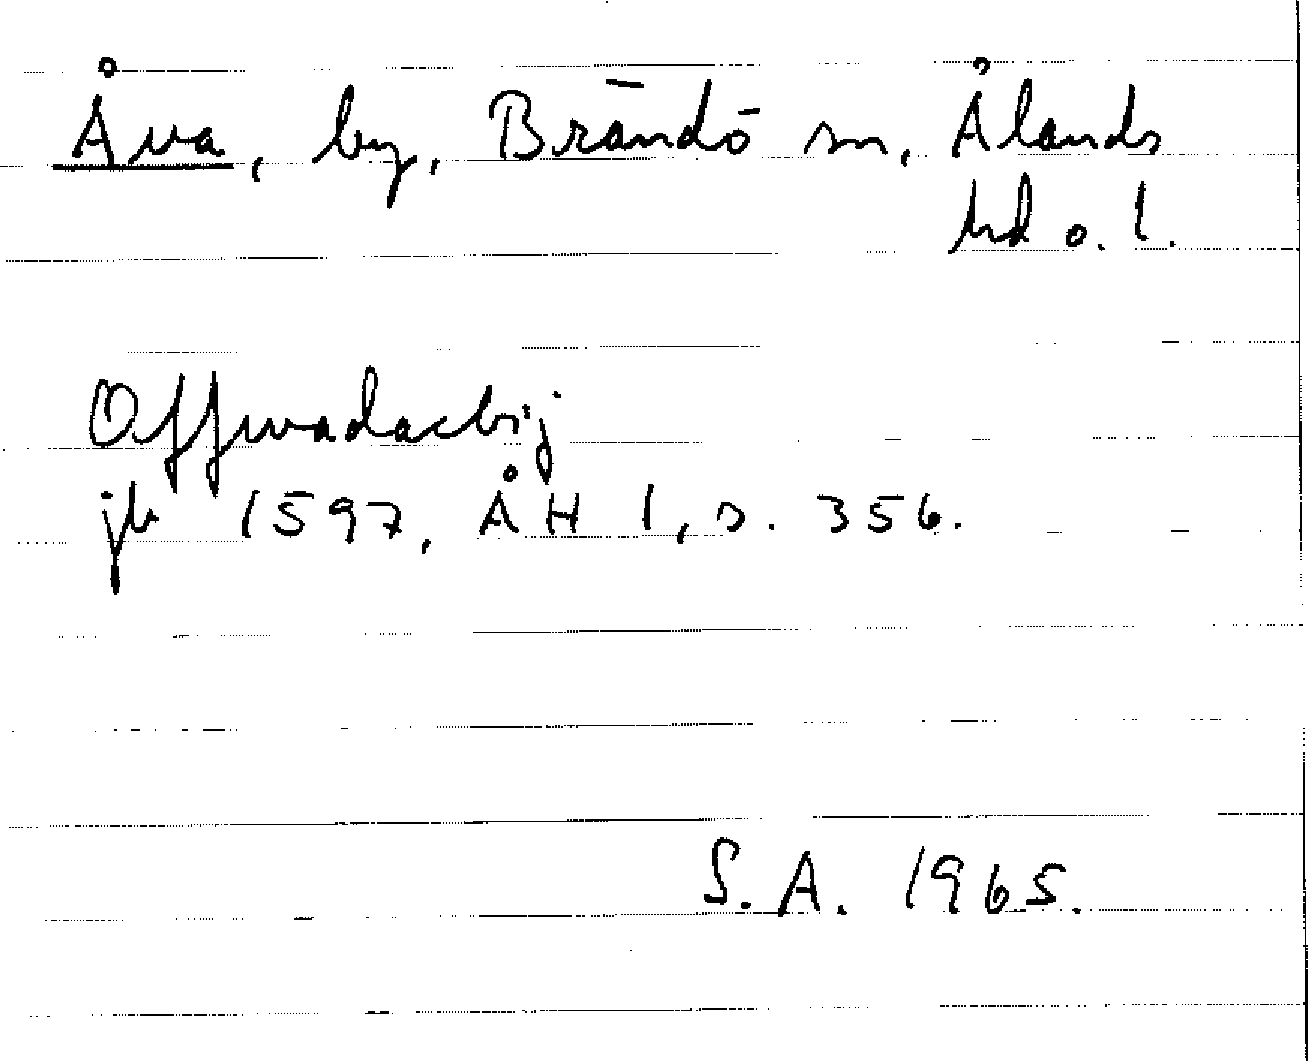 Åva, by, Brändö sn, Ålands
hd o. l.
Offwadacbij
jb 1597, ÅH 1, s. 356.
S. A. 1965.